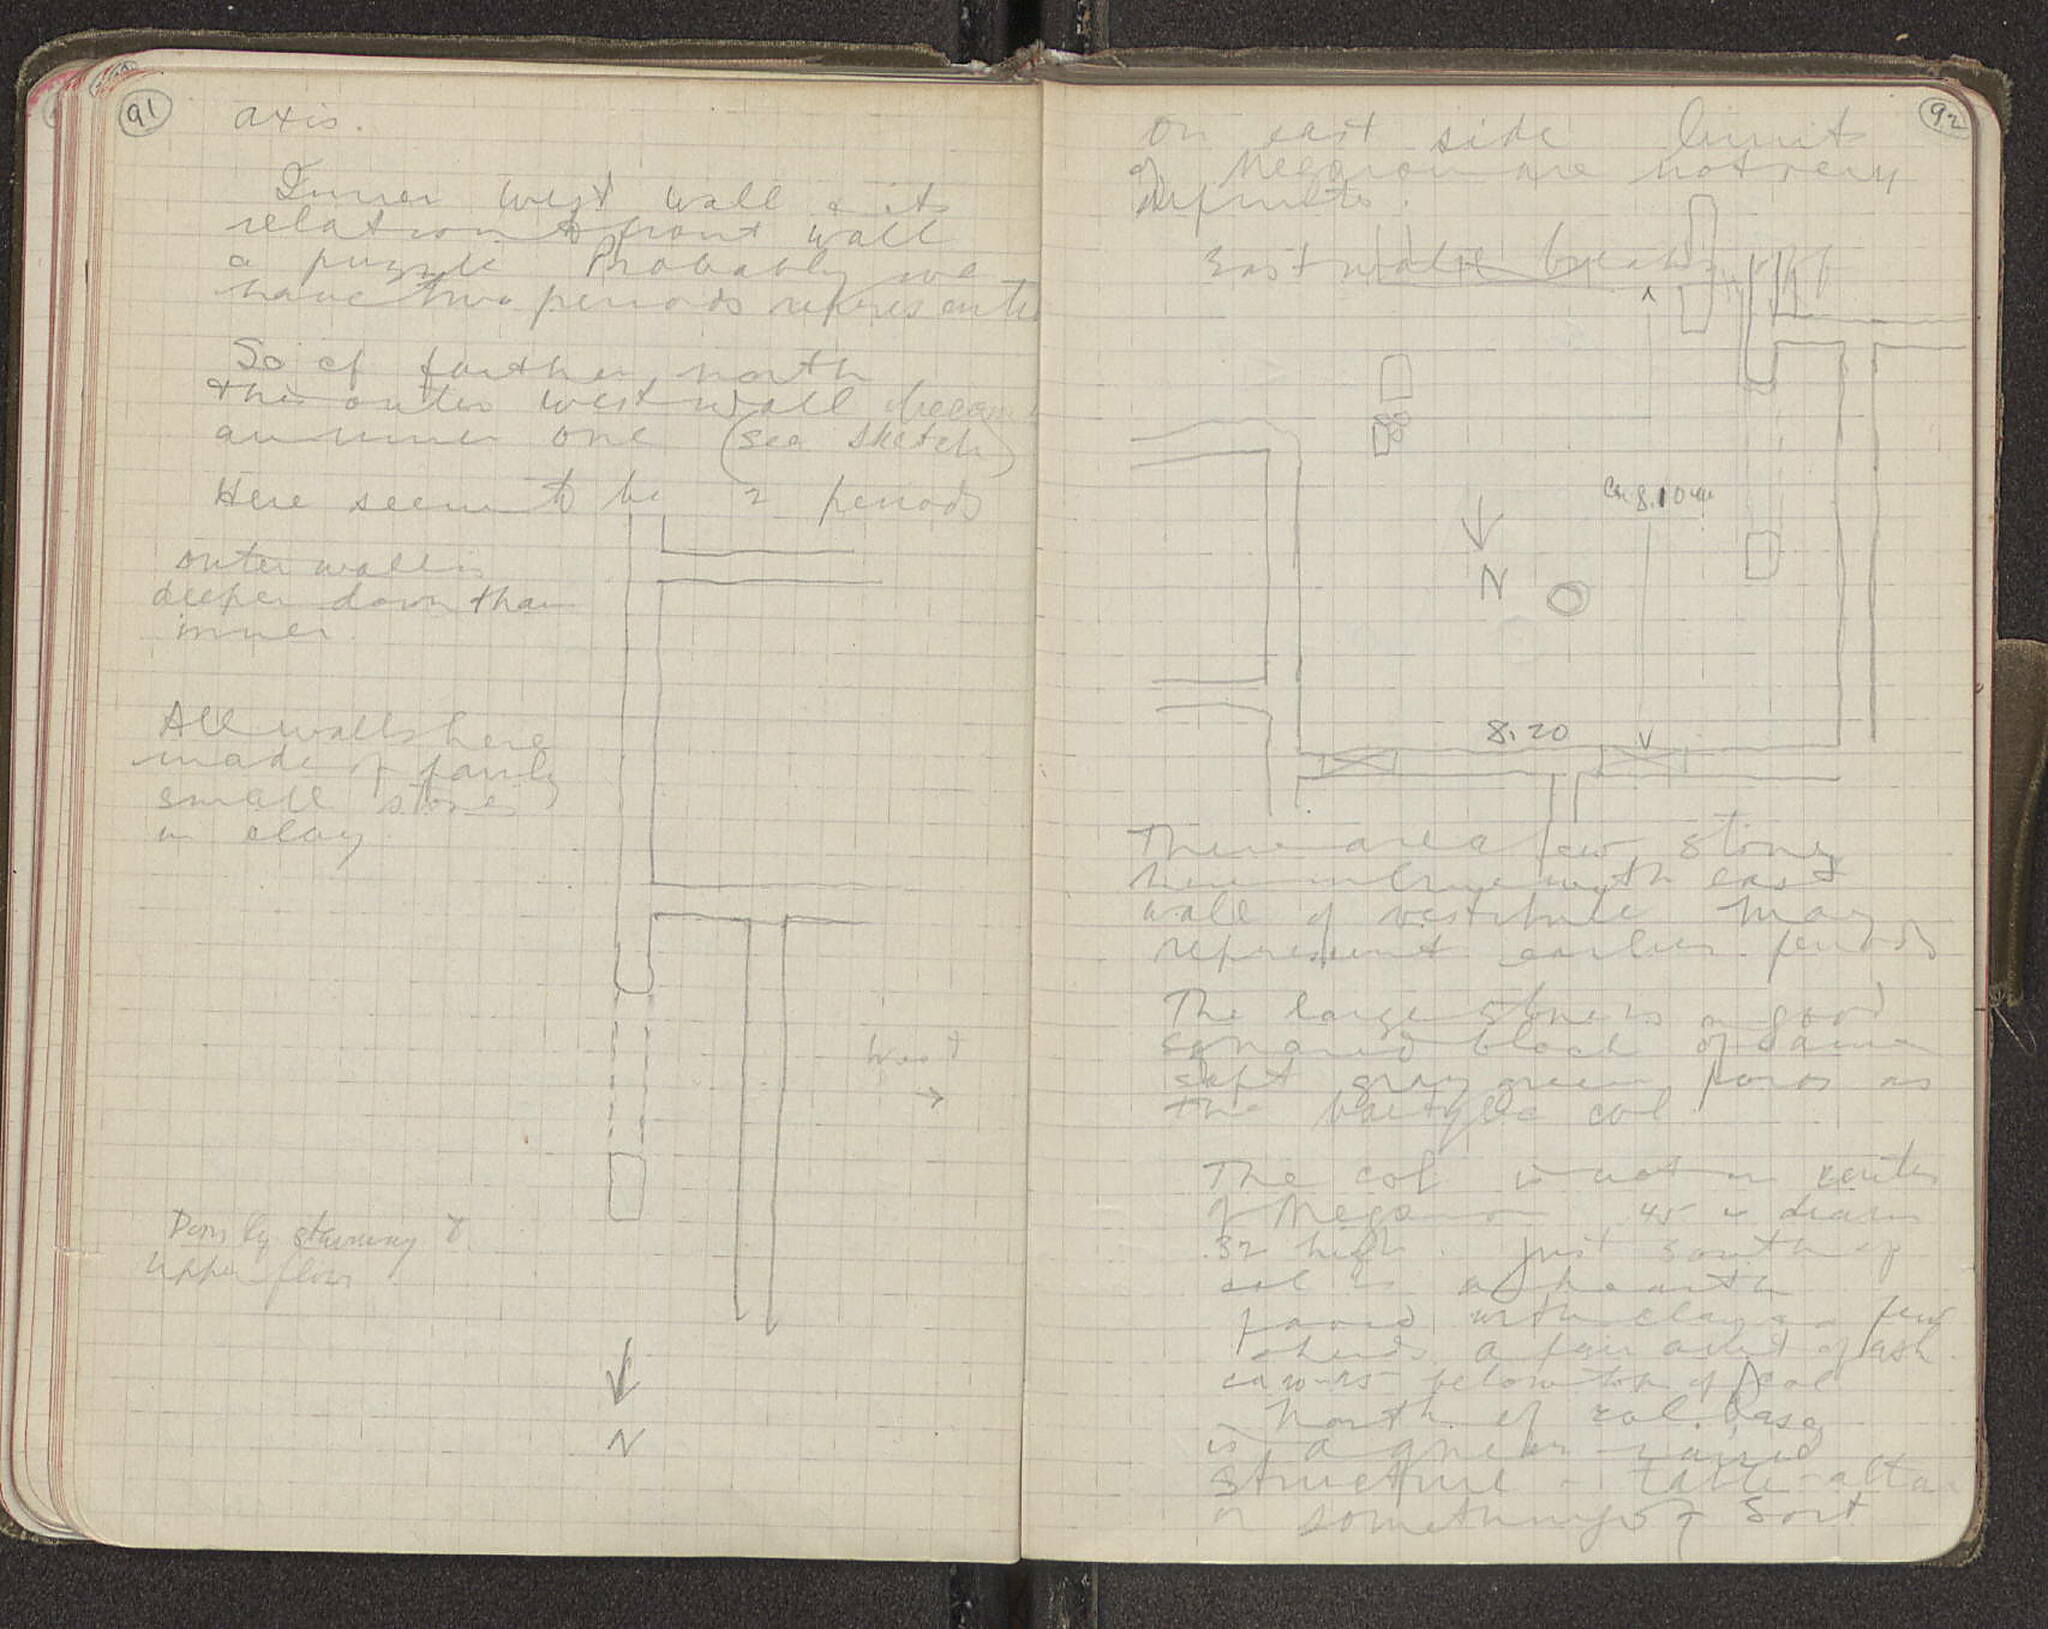 91
axis.
Inner west wall & its
relation to front wall
a puzzle Probably we
have two periods represented
So cf farther north
this outer west wall became
an inner one (see sketch)
Here seem to be 2 periods
outer wall is
deeper down than
inner.
All walls here
made of fairly
small stones
in clay.
West
→
Possibly stairway to
upper floor
N
92
On east side limits
of Megaron are not very
definite.
East wall breaks off
Ca 8.10 m
N
8.20
There are a few stones
here in line with east
wall of vestibule May
represent earlier period
The large stone is a good
squared block of same
soft gray green poros as
the col
The col is not in center
of Megaron .45 in diam
.32 high. Just south of
col is a hearth
paved with clay a few
sherds a fair amt of ash
below top of col
North of col. base
is a raised
structure - table-altar
or something of sort